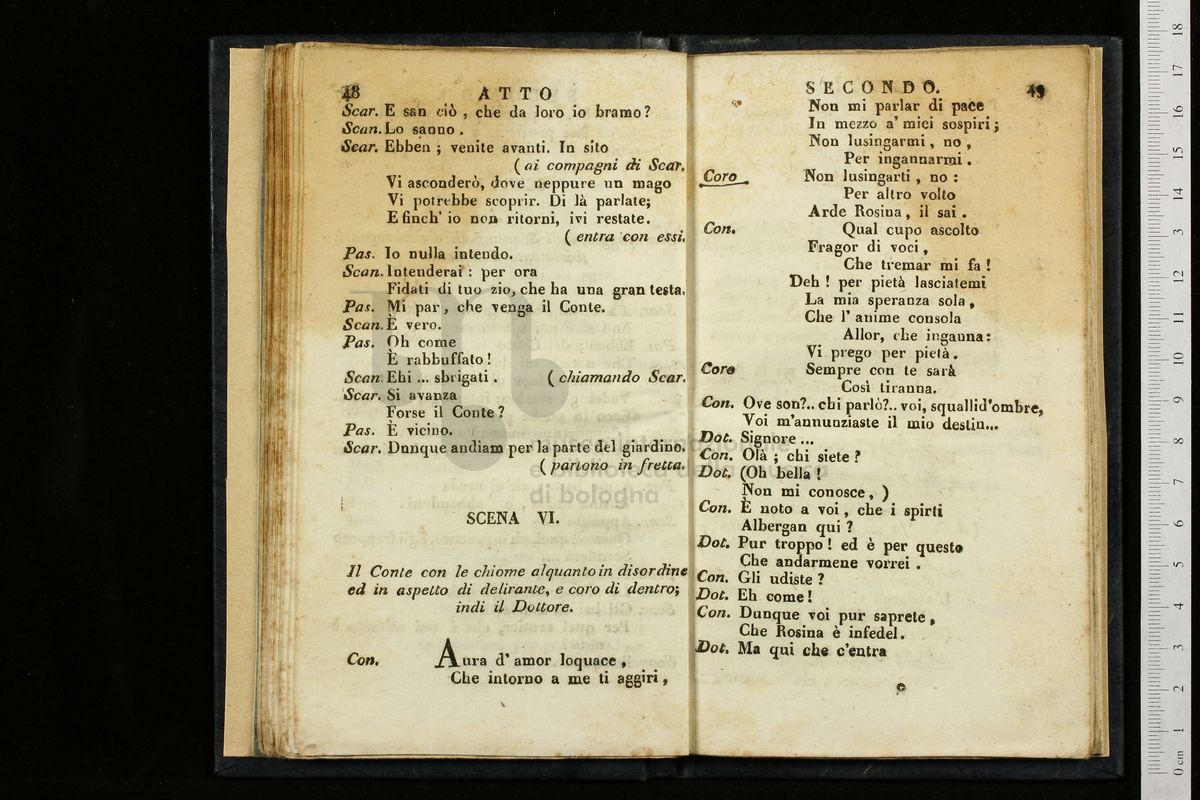 48 ATTO
Scar. E san ciò, che da loro io bramo?
Scan. Lo sanno.
Scar. Ebben; venite avanti. In sito
(ai compagni di Scar.
Vi asconderò, dove neppure un mago
Vi potrebbe scoprir. Di là parlate;
E finch' io non ritorni, ivi restate.
(entra con essi.
Pas. Io nulla intendo.
Scan. Intenderai: per ora
Fidati di tuo zio, che ha una gran testa.
Pas. Mi par, che venga il Conte.
Scan. È vero.
Pas. Oh come
È rabbuffato!
Scan. Ehi ... sbrigati. (chiamando Scar.
Scar. Si avanza
Forse il Conte?
Pas. È vicino.
Scar. Dunque andiam per la parte del giardino.
(partono in fretta.
SCENA VI.
Il Conte con le chiome alquanto in disordine
ed in aspetto di delirante, e coro di dentro;
indi il Dottore.
Con. Aura d' amor loquace,
Che intorno a me ti aggiri,
SECONDO. 49
Non mi parlar di pace
In mezzo a' miei sospiri;
Non lusingarmi, no,
Per ingannarmi.
Coro Non lusingarti, no:
Per altro volto
Arde Rosina, il sai.
Con. Qual cupo ascolto
Fragor di voci,
Che tremar mi fa!
Deh! per pietà lasciatemi
La mia speranza sola,
Che l' anime consola
Allor, che inganna:
Vi prego per pietà.
Coro Sempre con te sarà
Così tiranna.
Con. Ove son?.. chi parlò?.. voi, squallid'ombre,
Voi m'annunziaste il mio destin...
Dot. Signore ...
Con. Olà; chi siete?
Dot. (Oh bella!
Non mi conosce,)
Con. È noto a voi, che i spirti
Albergan qui?
Dot. Pur troppo! ed è per questo
Che andarmene vorrei.
Con. Gli udiste?
Dot. Eh come!
Con. Dunque voi pur saprete,
Che Rosina è infedel.
Dot. Ma qui che c'entra
c
museo internazionale
e biblioteca della musica
di bologna
0 cm 1 2 3 4 5 6 7 8 9 10 11 12 13 14 15 16 17 18